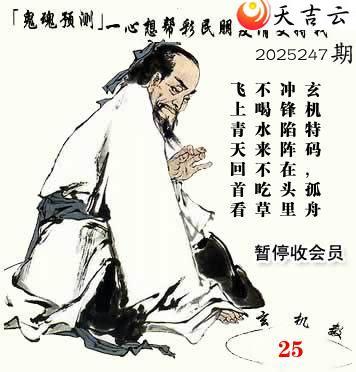 天吉云
「鬼魂预测」一心想帮彩民朋
2025247期
玄机特码，孤舟
冲锋陷阵在头里
不喝水来不吃草
飞上青天回首看
暂停收会员
玄机数
25